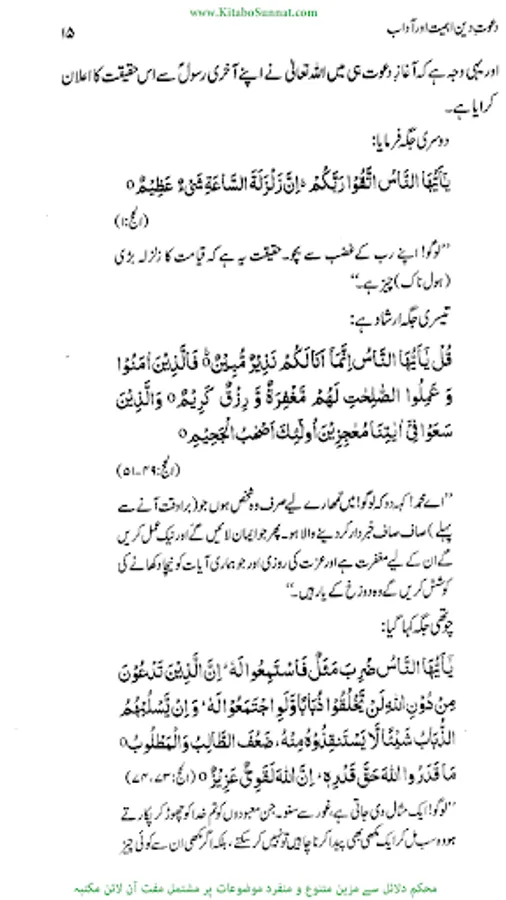 www.KitaboSunnat.com
دعوتِ دین اہمیت اور آداب
۱۵
اور یہی وجہ ہے کہ آغازِ دعوت ہی میں اللہ تعالیٰ نے اپنے آخری رسولؐ سے اس حقیقت کا اعلان
کرایا ہے۔
دوسری جگہ فرمایا:
یٰۤاَیُّهَا النَّاسُ اتَّقُوْا رَبَّكُمْ ۚ اِنَّ زَلْزَلَةَ السَّاعَةِ شَیْءٌ عَظِیْمٌ ۝
(الحج:۱)
”لوگو! اپنے رب کے غضب سے بچو۔ حقیقت یہ ہے کہ قیامت کا زلزلہ بڑی
(ہول ناک) چیز ہے۔“
تیسری جگہ ارشاد ہے:
قُلْ یٰۤاَیُّهَا النَّاسُ اِنَّمَاۤ اَنَا لَكُمْ نَذِیْرٌ مُّبِیْنٌ ۝ۚ فَالَّذِیْنَ اٰمَنُوْا
وَ عَمِلُوا الصّٰلِحٰتِ لَهُمْ مَّغْفِرَةٌ وَّ رِزْقٌ كَرِیْمٌ ۝ وَالَّذِیْنَ
سَعَوْا فِیْۤ اٰیٰتِنَا مُعٰجِزِیْنَ اُولٰٓئِكَ اَصْحٰبُ الْجَحِیْمِ ۝
(الحج:۴۹-۵۱)
”اے محمدؐ! کہہ دو کہ لوگو! میں تمھارے لیے صرف وہ شخص ہوں جو (برا وقت آنے سے
پہلے) صاف صاف خبردار کر دینے والا ہو۔ پھر جو ایمان لائیں گے اور نیک عمل کریں
گے ان کے لیے مغفرت ہے اور عزت کی روزی اور جو ہماری آیات کو نیچا دکھانے کی
کوشش کریں گے وہ دوزخ کے یار ہیں۔“
چوتھی جگہ کہا گیا:
یٰۤاَیُّهَا النَّاسُ ضُرِبَ مَثَلٌ فَاسْتَمِعُوْا لَهٗ ؕ اِنَّ الَّذِیْنَ تَدْعُوْنَ
مِنْ دُوْنِ اللّٰهِ لَنْ یَّخْلُقُوْا ذُبَابًا وَّلَوِ اجْتَمَعُوْا لَهٗ ؕ وَ اِنْ یَّسْلُبْهُمُ
الذُّبَابُ شَیْئًا لَّا یَسْتَنْقِذُوْهُ مِنْهُ ؕ ضَعُفَ الطَّالِبُ وَ الْمَطْلُوْبُ ۝
مَا قَدَرُوا اللّٰهَ حَقَّ قَدْرِهٖ ؕ اِنَّ اللّٰهَ لَقَوِیٌّ عَزِیْزٌ ۝ (الحج: ۷۳، ۷۴)
”لوگو! ایک مثال دی جاتی ہے، غور سے سنو۔ جن معبودوں کو تم خدا کو چھوڑ کر پکارتے
ہو وہ سب مل کر ایک مکھی بھی پیدا کرنا چاہیں تو نہیں کر سکتے، بلکہ اگر مکھی ان سے کوئی چیز
محکم دلائل سے مزین متنوع و منفرد موضوعات پر مشتمل مفت آن لائن مکتبہ